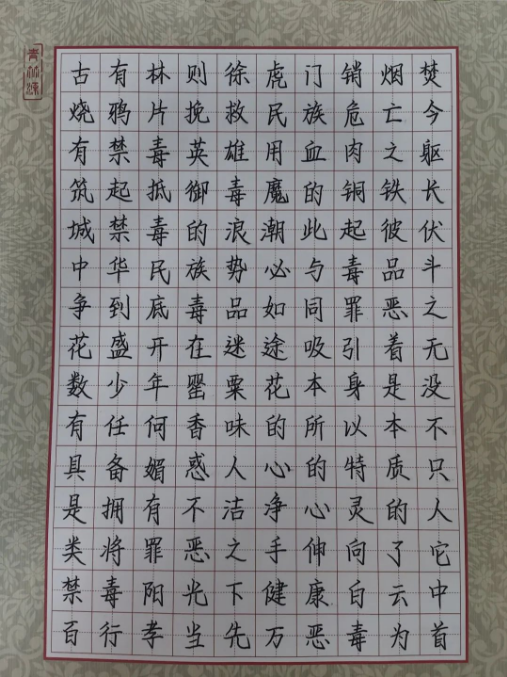 古有林则徐虎门销烟焚
烧鸦片挽救民族危亡今
有禁毒英雄用血肉之躯
筑起抵御毒魔的铜铁长
城禁毒的浪潮此起彼伏
中华民族势必与毒品斗
争到底毒品如同罪恶之
花盛开在迷途吸引着无
数少年罂粟花本身是没
有任何香味的所以本不
具备媚惑人心的特质只
是拥有不洁净心灵的人
类将罪恶之手伸向了它
禁毒阳光下健康白云中
百行孝当先万恶毒为首